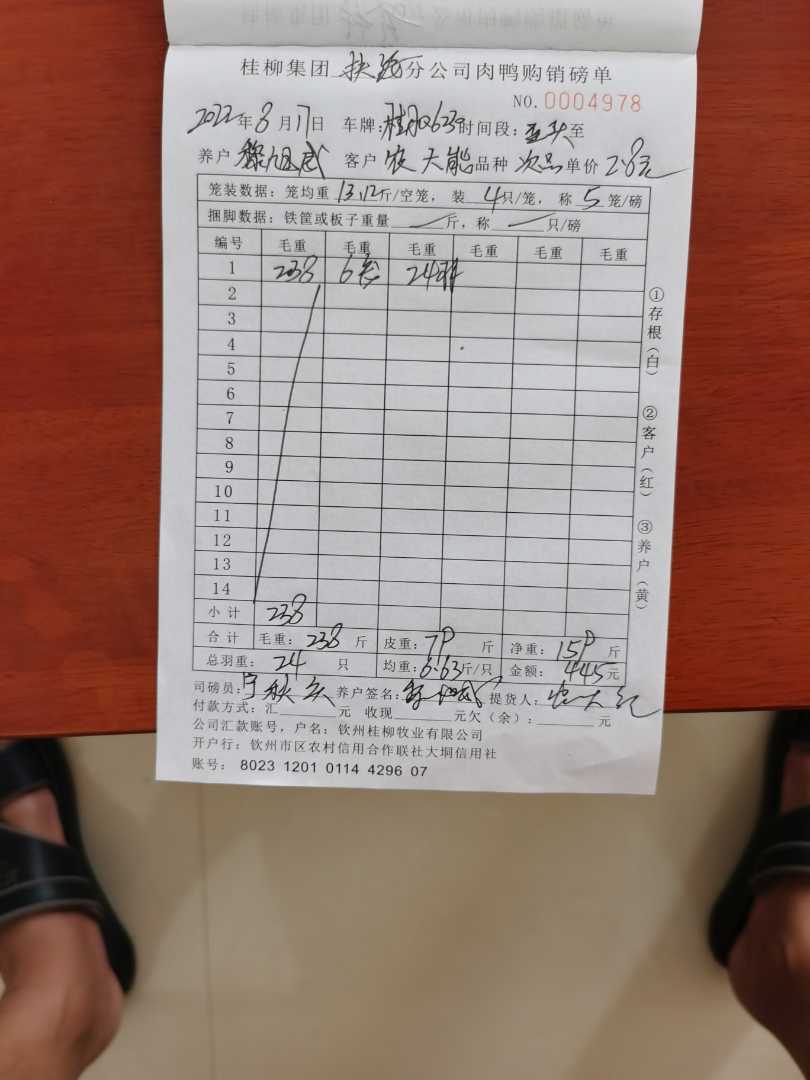 桂柳集团 分公司肉鸭购销磅单
NO.0004978
2022年8月17日 车牌: 时间段: 至
养户 客户 农天能 品种 次品 单价 2.8元
笼装数据:笼均重 13.12斤/空笼,装 4只/笼,称 5 笼/磅
捆脚数据:铁筐或板子重量 斤,称 只/磅
编号 毛重 毛重 毛重 毛重 毛重 毛重
1 238 6笼 24只
2
3
4
5
6
7
8
9
10
11
12
13
14
小计 238
合计 毛重: 238 斤 皮重: 斤 净重: 斤
总羽重: 24 只 均重:6.63斤/只 金额: 445元
司磅员: 养户签名: 提货人:
付款方式:汇 元 收现 元欠(余): 元
公司汇款账号,户名:钦州桂柳牧业有限公司
开户行:钦州市区农村信用合作联社大垌信用社
账号: 8023 1201 0114 4296 07
①存根(白)
②客户(红)
③养户(黄)